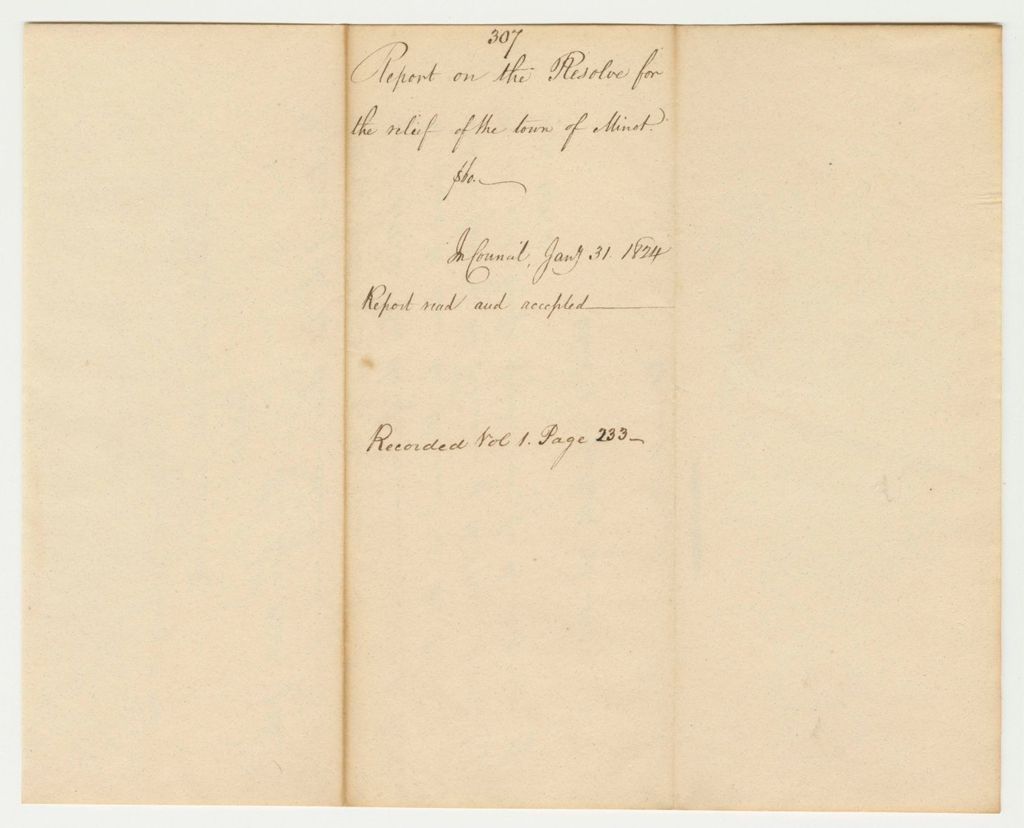 307
Report on the Resolve for
the relief of the town of Minot.
$60.
In Council, Jany 31. 1824
Report read and accepted
Recorded Vol 1. Page 233